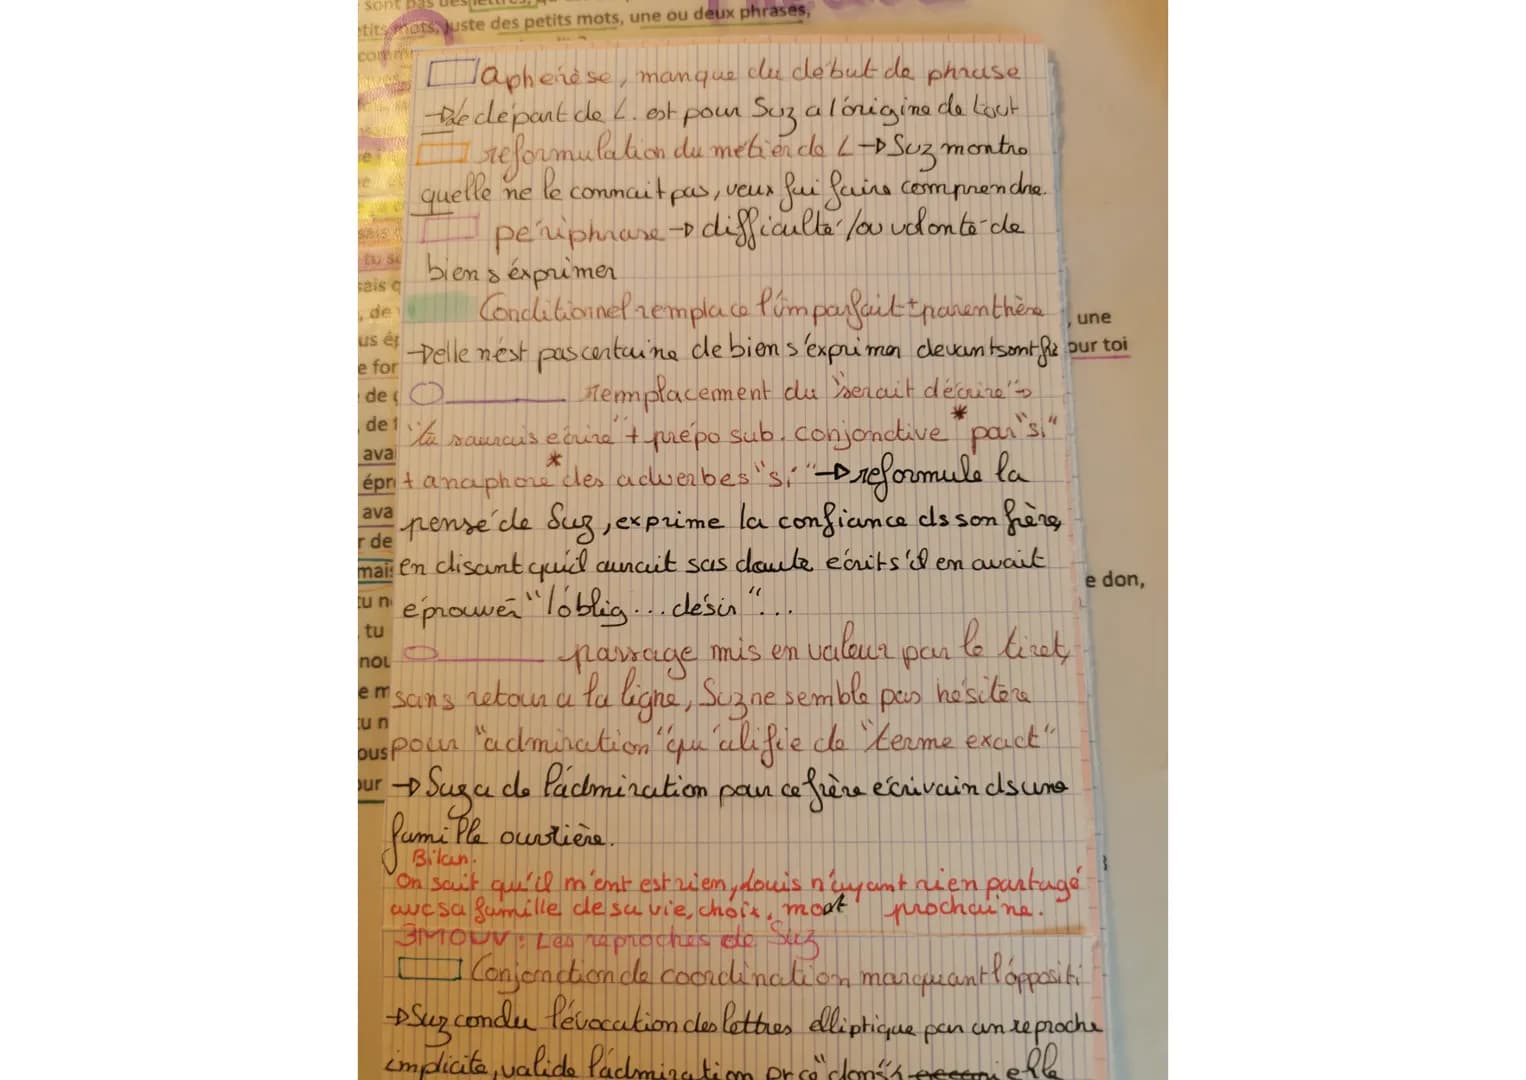 tits mots, juste des petits mots, une ou deux phrases,
aphérèse, manque du début de phrase
→ le départ de L. est pour Suz a l'origine de tout
reformulation du métier de L → Suz montre
quelle ne le connait pas, veux lui faire comprendre.
périphrase → difficulté /ou volonté de
bien s'éxprimer
Conditionnel remplace l'imparfait + parenthère
, une
→ elle n'est pas certaine de bien s'exprimer devant son frè
our toi
remplacement du "serait décrire" →
"tu saurais ecrire" + prépo sub. conjonctive * par "si"
+ anaphore * des adverbes "si" → reformule la
pensé de Suz, exprime la confiance ds son frère,
en disant qu'il aurait sas doute écrit s'il en avait
e don,
éprouver "l'oblig... désir"...
passage mis en valeur par le tiret,
sans retour a la ligne, Suz ne semble pas hésitère
pour "admiration" qu'alifié de "terme exact"
→ Suz a de l'admiration pour ce frère écrivain ds une
famille ouvrière.
Bilan.
On sait qu'il m'ent est rien, Louis n'ayant rien partagé
avc sa famille de sa vie, choix, mort prochaine.
3MOUV : Les reproches de Suz
Conjonction de coordination marquant l'oppositi
→ Suz condu l'évocation des lettres elliptique par un reproche
implicite, valide l'admiration